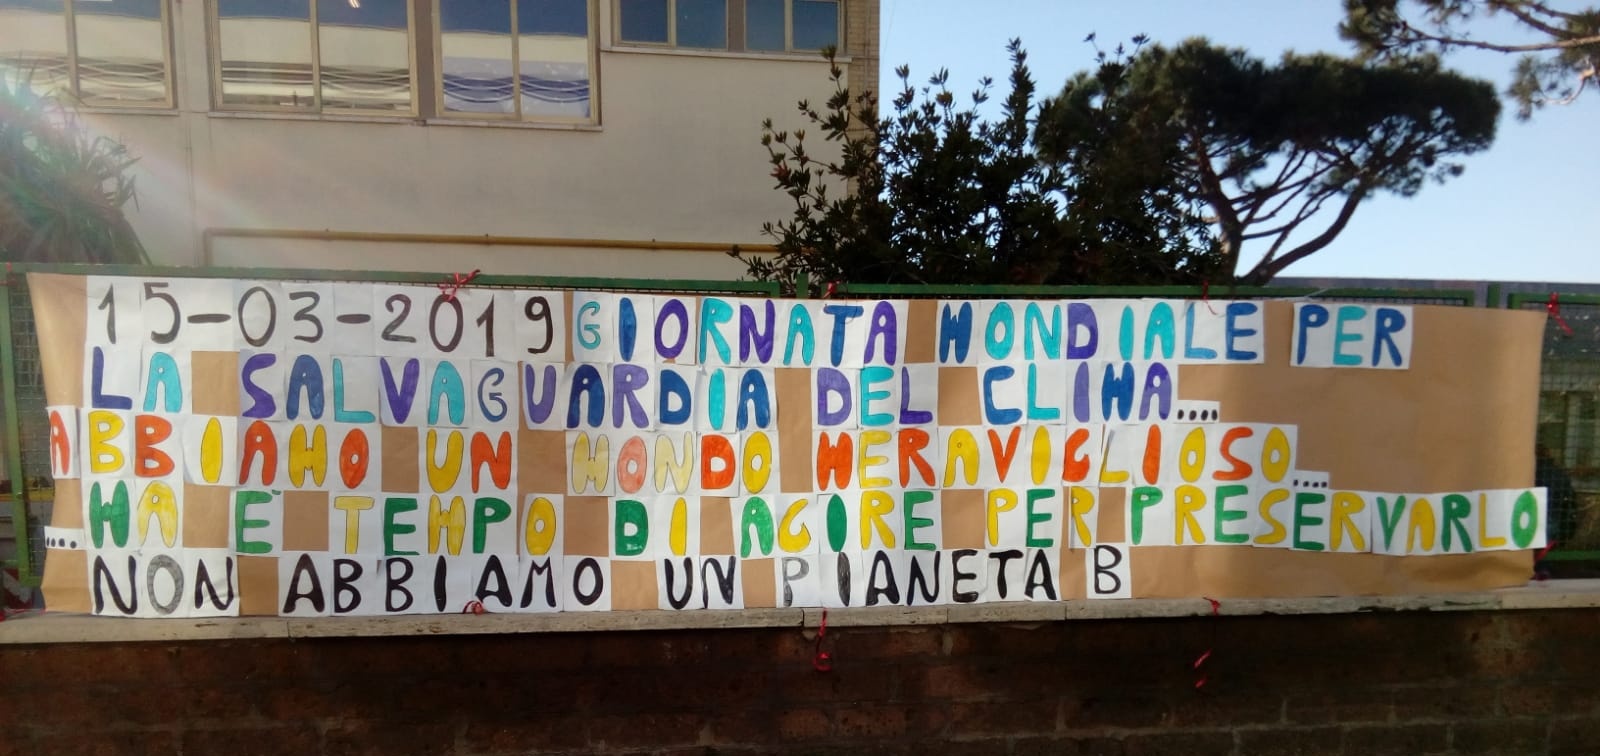 15-03-2019 GIORNATA MONDIALE PER
LA SALVAGUARDIA DEL CLIMA....
ABBIAMO UN MONDO MERAVIGLIOSO....
....MA E' TEMPO DI AGIRE PER PRESERVARLO
NON ABBIAMO UN PIANETA B